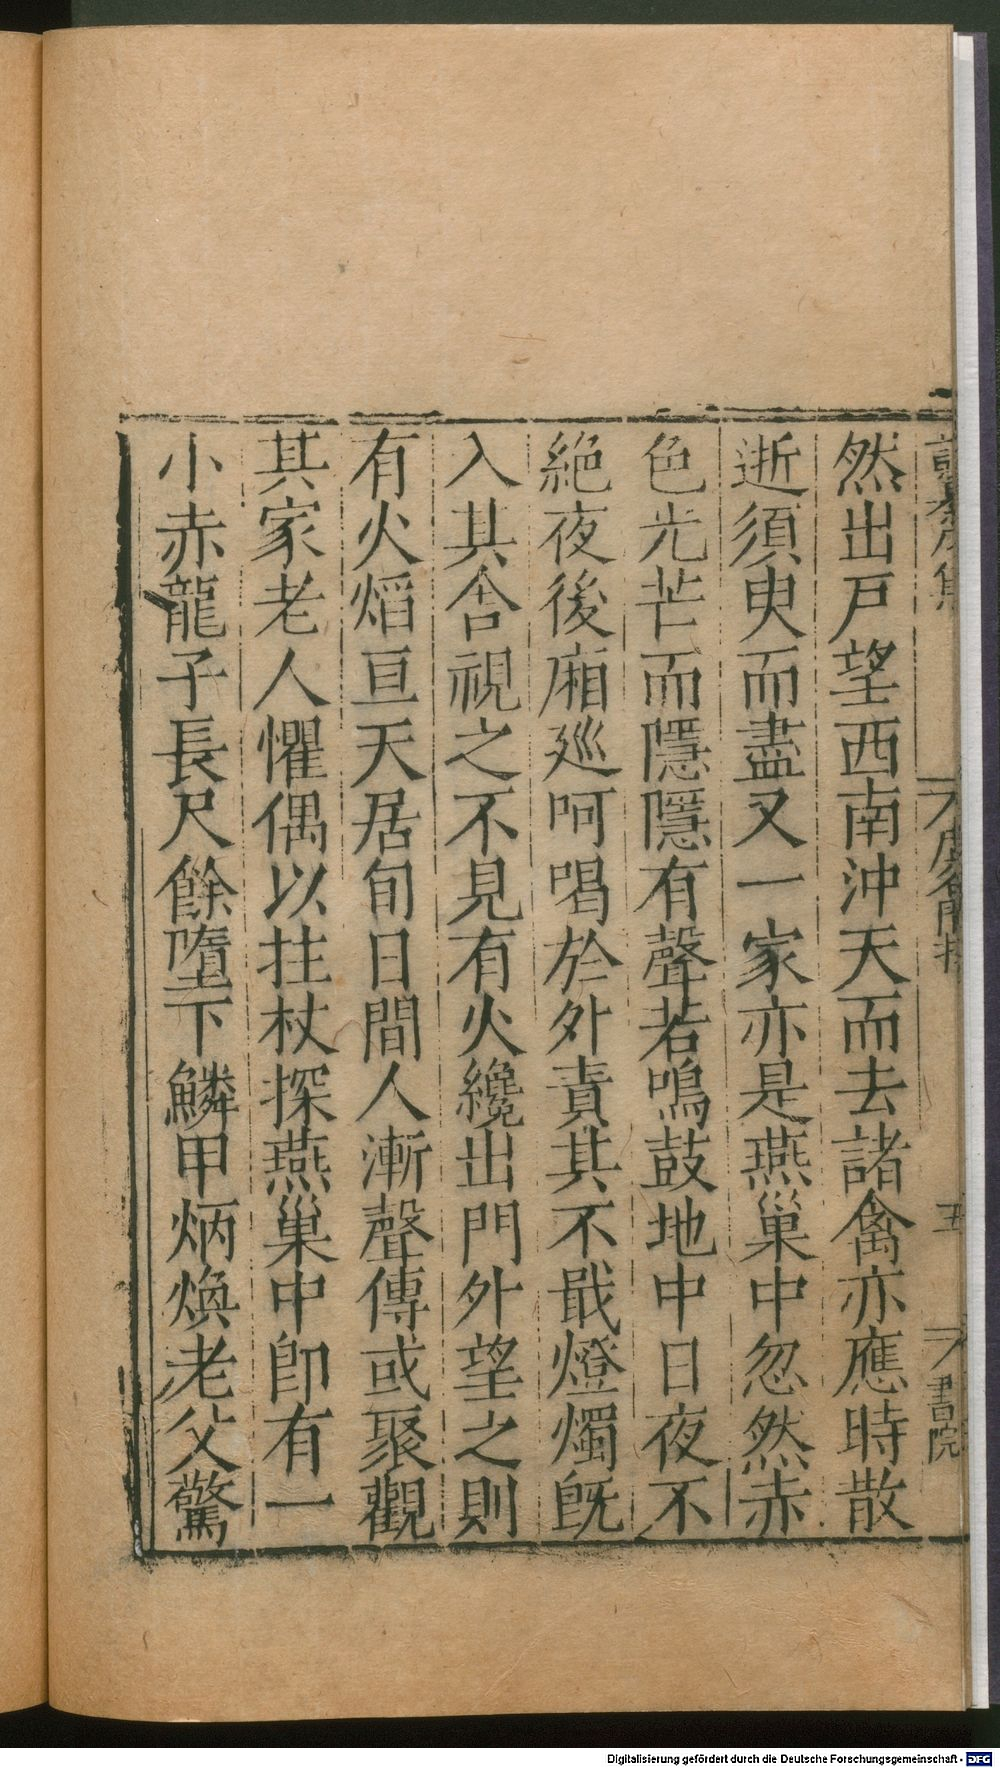 然出戸望西南沖天而去諸禽亦應時散
逝須臾而盡又一家亦是燕巢中忽然赤
色光芒而隱隱有聲若鳴鼓地中日夜不
絕夜後廂廵呵喝於外責其不戢燈燭旣
入其舎視之不見有火纔出門外望之則
有火熖亘天居旬日間人漸聲傳或聚觀
其家老人懼偶以拄杖探燕巢中卽有一
小赤龍子長尺餘墮下鱗甲炳煥老父驚
五
書院
Digitalisierung gefördert durch die Deutsche Forschungsgemeinschaft - DFG